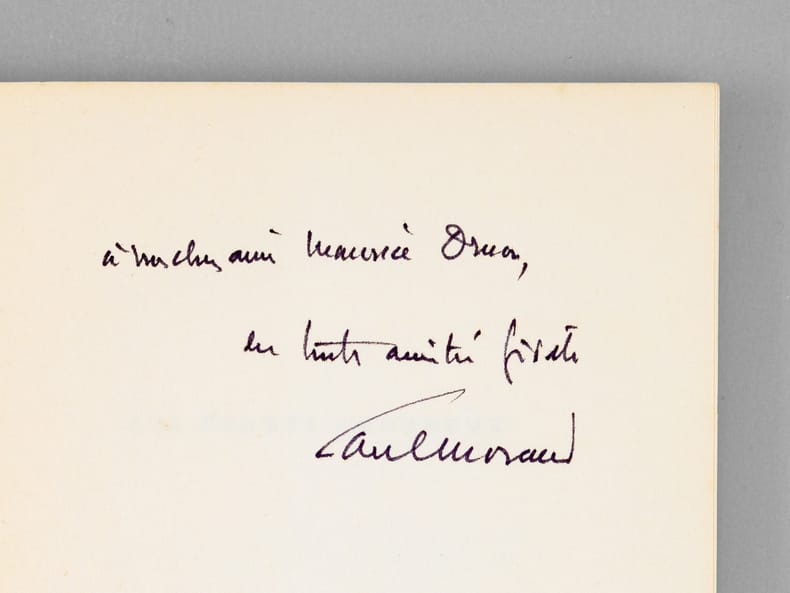 à mon cher ami Maurice Druon,
en toute amitié fidèle
Paul Morand